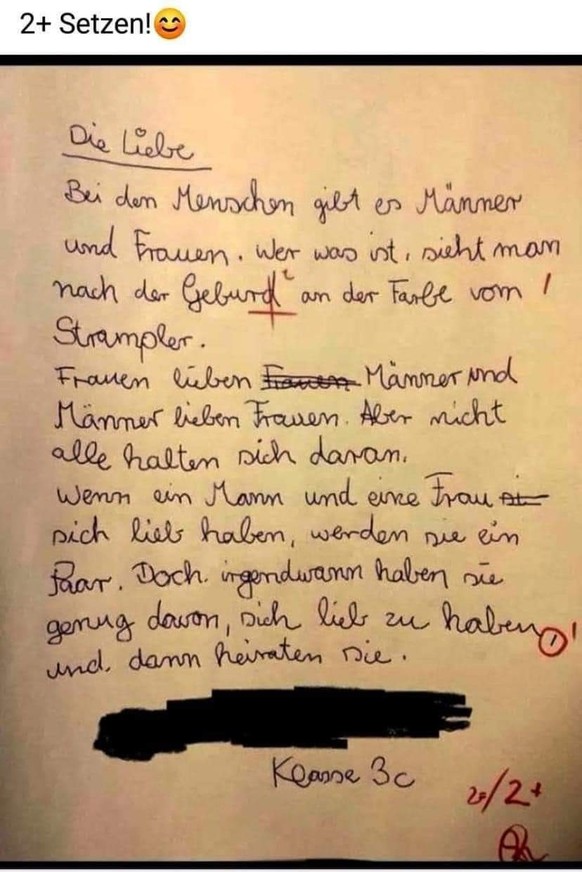 2+ Setzen!😊
Die Liebe
Bei den Menschen gibt es Männer
und Frauen. Wer was ist, sieht man
nach der Geburd t an der Farbe vom
Strampler.
Frauen lieben Frauen Männer und
Männer lieben Frauen. Aber nicht
alle halten sich daran.
Wenn ein Mann und eine Frau
sich lieb haben, werden sie ein
Paar. Doch irgendwann haben sie
genug davon, sich lieb zu haben,
und dann heiraten sie.
Klasse 3c
2+